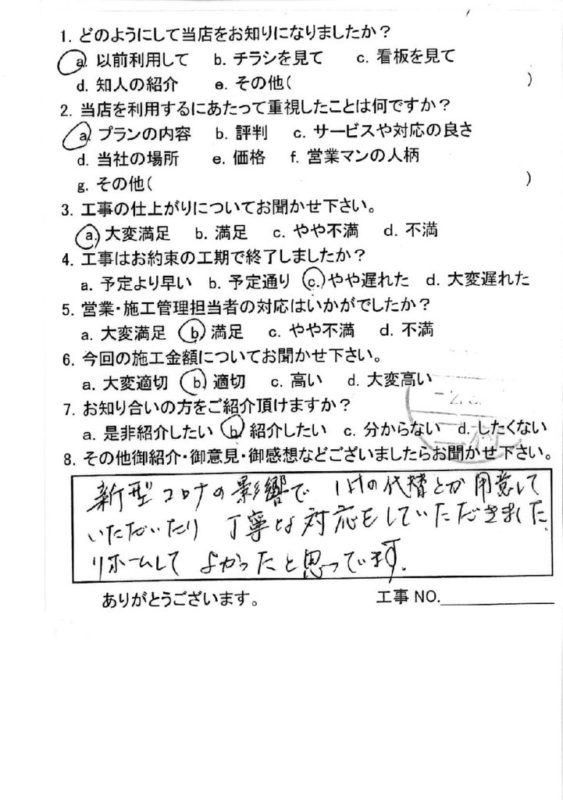 1. どのようにして当店をお知りになりましたか？
a. 以前利用して b. チラシを見て c. 看板を見て
d. 知人の紹介 e. その他( )
2. 当店を利用するにあたって重視したことは何ですか？
a. プランの内容 b. 評判 c. サービスや対応の良さ
d. 当社の場所 e. 価格 f. 営業マンの人柄
g. その他( )
3. 工事の仕上がりについてお聞かせ下さい。
a. 大変満足 b. 満足 c. やや不満 d. 不満
4. 工事はお約束の工期で終了しましたか？
a. 予定より早い b. 予定通り c. やや遅れた d. 大変遅れた
5. 営業・施工管理担当者の対応はいかがでしたか？
a. 大変満足 b. 満足 c. やや不満 d. 不満
6. 今回の施工金額についてお聞かせ下さい。
a. 大変適切 b. 適切 c. 高い d. 大変高い
7. お知り合いの方をご紹介頂けますか？
a. 是非紹介したい b. 紹介したい c. 分からない d. したくない
8. その他御紹介・御意見・御感想などございましたらお聞かせ下さい。
新型コロナの影響で の代替とか用意して
いただいたり 丁寧な対応をしていただきました
リホームして よかったと思っています.
ありがとうございます。 工事 NO.